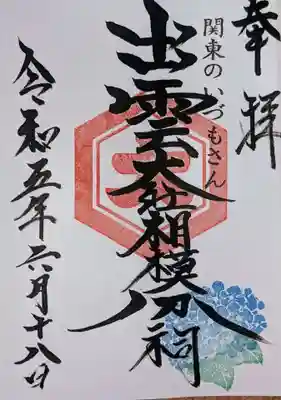 奉拝
関東のいづもさん
出雲大社相模分祠
令和五年六月十八日